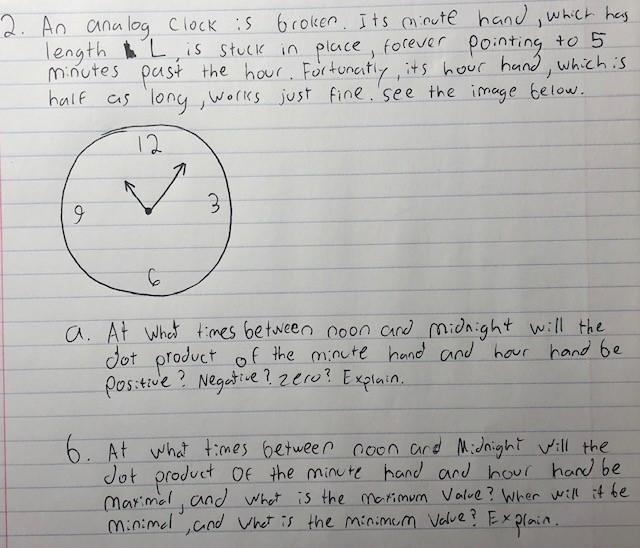 2. An analog clock is broken. Its minute hand, which has
length L, is stuck in place, forever pointing to 5
minutes past the hour. Fortunatly, its hour hand, which is
half as long, works just fine. see the image below.
12
9
3
6
a. At what times between noon and midnight will the
dot product of the minute hand and hour hand be
positive? Negative? zero? Explain.
b. At what times between noon and Midnight will the
dot product of the minute hand and hour hand be
maximal, and what is the maximum value? When will it be
minimal, and what is the minimum value? Explain.